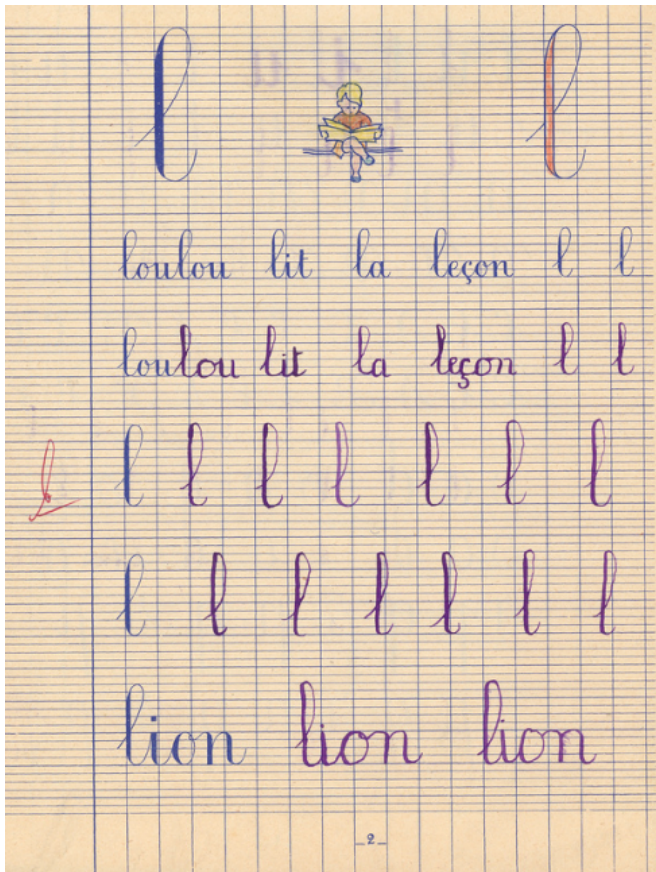 l l
loulou lit la leçon l l
loulou lit la leçon l l
l l l l l l l
l l l l l l l
lion lion lion
_2_